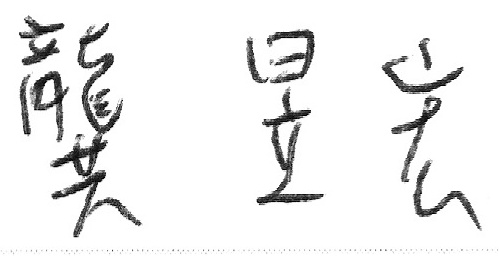 龔昱宏